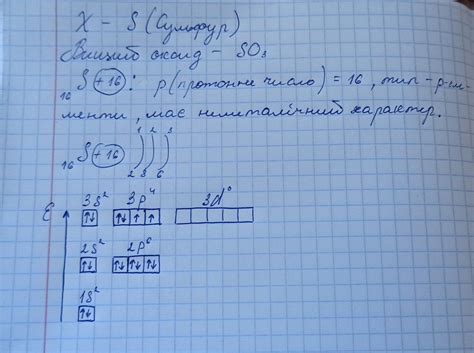 X - S (Сульфур)
Вищий оксид - SO₃
₁₆S (+16): p (протонне число) = 16, тип - p-еле-
менти, має неметалічний характер.
1 2 3
₁₆S (+16) ) ) )
2 8 6
3s² 3p⁴ 3d⁰
E ↑↓ ↑↓ ↑ ↑
2s² 2p⁶
↑↓ ↑↓ ↑↓ ↑↓
1s²
↑↓